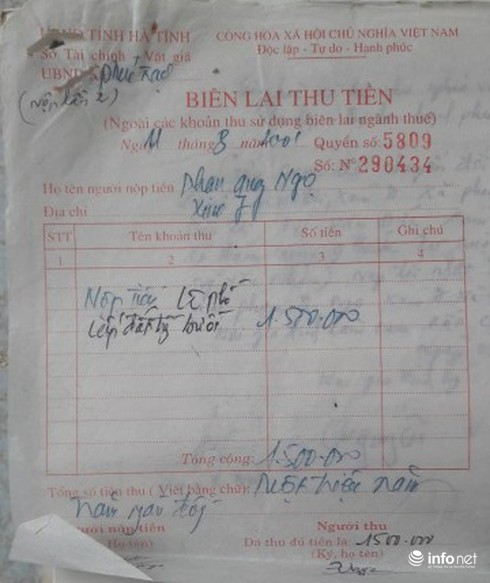 UBND TỈNH HÀ TĨNH
Sở Tài chính - Vật giá
UBND
(Nộp lần 2)
CỘNG HÒA XÃ HỘI CHỦ NGHĨA VIỆT NAM
Độc lập - Tự do - Hạnh phúc
BIÊN LAI THU TIỀN
(Ngoài các khoản thu sử dụng biên lai ngành thuế)
Ngày 11 tháng 8 năm 2001 Quyển số: 5809
Số: Nº 290434
Họ tên người nộp tiền Phan Quang Ngọ
Địa chỉ Xóm 7
STT Tên khoản thu Số tiền Ghi chú
1 2 3 4
Nộp tiền Lệ phí
cấp đất 1.500.000
Tổng cộng: 1.500.000
Tổng số tiền thu ( Viết bằng chữ): Một triệu năm
trăm ngàn đồng
Người nộp tiền Người thu
Họ tên) Đã thu đủ tiền là: 1500.000
(Ký, họ tên)
infonet